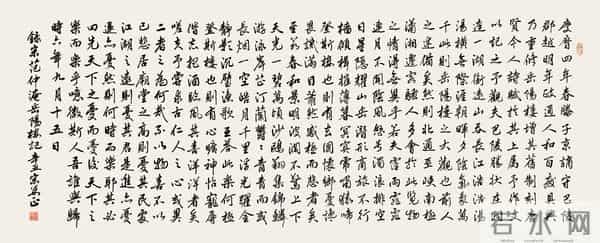 慶曆四年春滕子京謫守巴陵
郡越明年政通人和百廢具興
乃重修岳陽樓增其舊制刻唐
賢今人詩賦於其上屬予作文
以記之予觀夫巴陵勝狀在洞
庭一湖銜遠山吞長江浩浩湯
湯橫無際涯朝暉夕陰氣象萬
千此則岳陽樓之大觀也前人
之述備矣然則北通巫峽南極
瀟湘遷客騷人多會於此覽物
之情得無異乎若夫霪雨霏霏
連月不開陰風怒號濁浪排空
日星隱曜山岳潛形商旅不行
檣傾楫摧薄暮冥冥虎嘯猿啼
登斯樓也則有去國懷鄉憂讒
畏譏滿目蕭然感極而悲者矣
至若春和景明波瀾不驚上下
天光一碧萬頃沙鷗翔集錦鱗
游泳岸芷汀蘭郁郁青青而或
長煙一空皓月千里浮光躍金
靜影沉璧漁歌互答此樂何極
登斯樓也則有心曠神怡寵辱
偕忘把酒臨風其喜洋洋者矣
嗟夫予嘗求古仁人之心或異
二者之為何哉不以物喜不以
己悲居廟堂之高則憂其民處
江湖之遠則憂其君是進亦憂
退亦憂然則何時而樂耶其必
曰先天下之憂而憂後天下之
樂而樂乎噫微斯人吾誰與歸
時六年九月十五日
錄宋范仲淹岳陽樓記辛丑
若水网